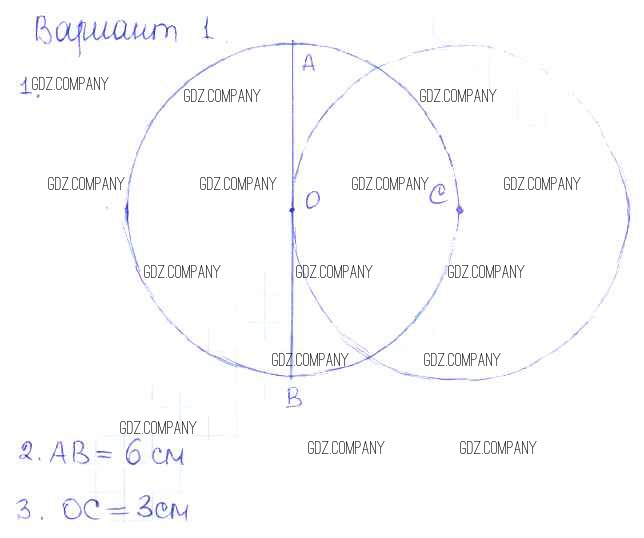 Вариант 1.
1.
GDZ.COMPANY
A
GDZ.COMPANY GDZ.COMPANY
GDZ.COMPANY GDZ.COMPANY GDZ.COMPANY GDZ.COMPANY
O C
GDZ.COMPANY GDZ.COMPANY GDZ.COMPANY
GDZ.COMPANY GDZ.COMPANY
B
GDZ.COMPANY
GDZ.COMPANY GDZ.COMPANY
2. AB = 6 см
3. OC = 3 см